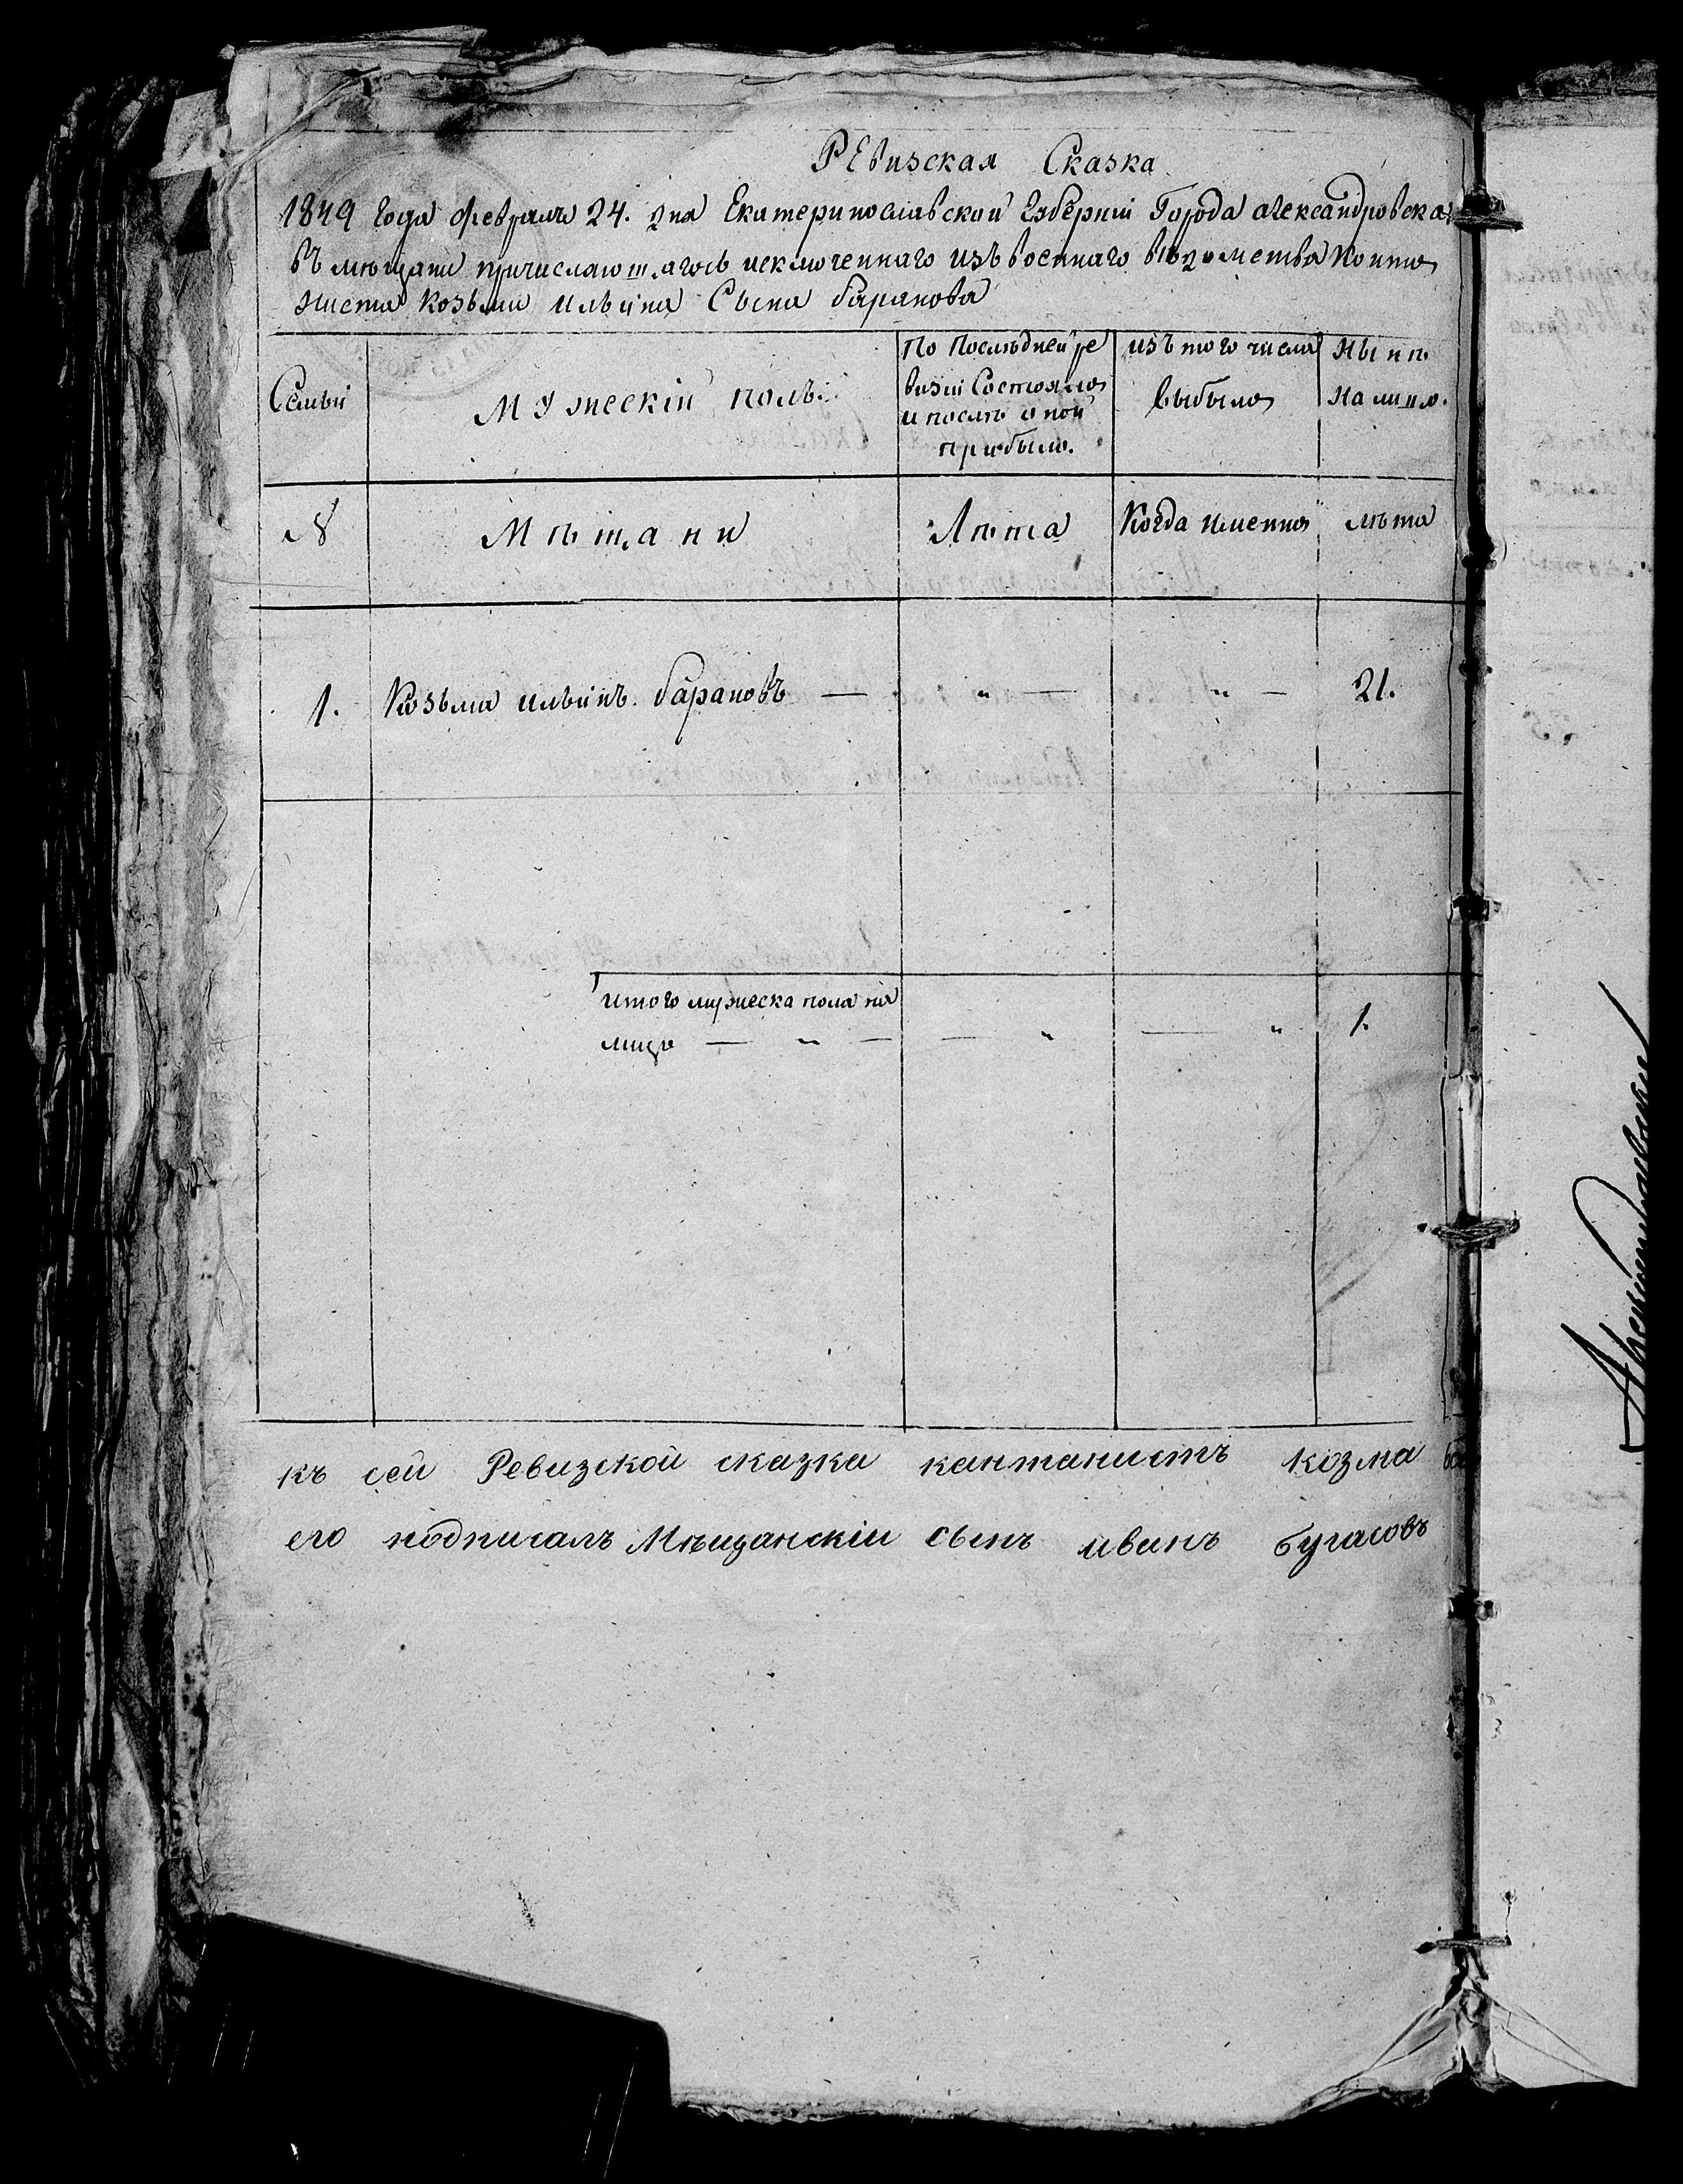 Ревизская Сказка
1849 года февраля 24. дня Екатеринославской Губерніи Города александровска
въ мѣщани причислающагось исключеннаго изъ военнаго вѣдомстваКонто
ниста Козьми ильина Сына баранова
Семьи
Мужескій полъ.
По Послѣдней ре
визіи Состояло
и послѣ оной
прибыло.
изъ того числа
выбыло
Нынѣ
на лицо.
№
Мѣщани
Лѣта
Когда именно
лѣта
1. Козьма ильинъ. барановъ — „ — „ — 21.
итого мужеска пола на
лицо — „ — — „ — „ 1.
къ сей Ревизской сказки кантанистъ козма
его подписалъ Мѣщанскіи сынъ иванъ бугасовъ